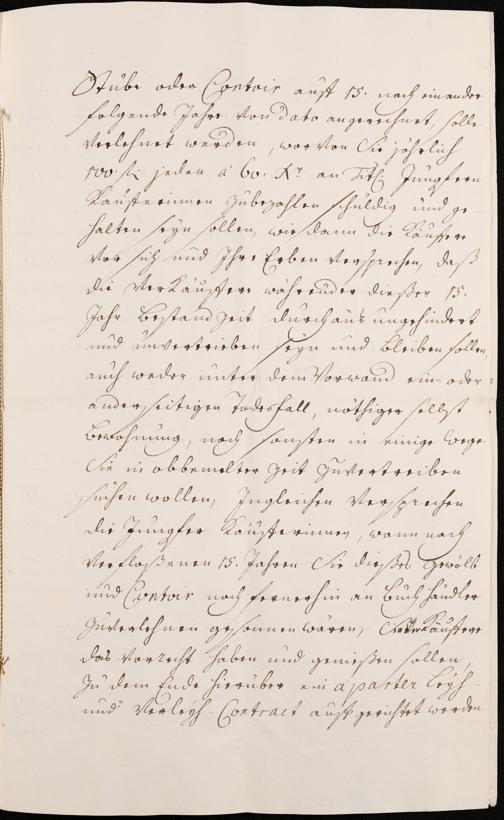 Stube oder Contoir auff 15. nach einander
folgende Jahre von dato angerechnet, solle
verlehnet werden, worvon Sie jährlich
100 fl: jeden à 60. Xr. an Titl: Jungfern
Käufferinnen zubezahlen schuldig und ge-
halten seyn sollen, wie dann die Käuffere
vor sich und Ihre Erben versprechen, daß
die Verkäuffere währender dießer 15.
Jahr Bestand Zeit durchaus ungehindert
und unvertrieben seyn und bleiben sollen,
auch weder unter dem Vorwand ein- oder
anderseitigen Todesfall, nöthiger selbst
Bewohnung, noch sonsten in einige Wege
Sie in obbemelter Zeit zuvertreiben
suchen wollen, Ingleichen versprechen
die Jungfer Käufferinnen, wann nach
verfloßenen 15. Jahren Sie dießes Gewölb
und Contoir noch fernerhin an Buchhändler
zuverlehnen gesonnen wären, Verkäuffere
das Vorrecht haben und genießen sollen,
zu dem Ende hierüber ein à parter Leyh-
und Verleyh-Contract auffgerichtet werden